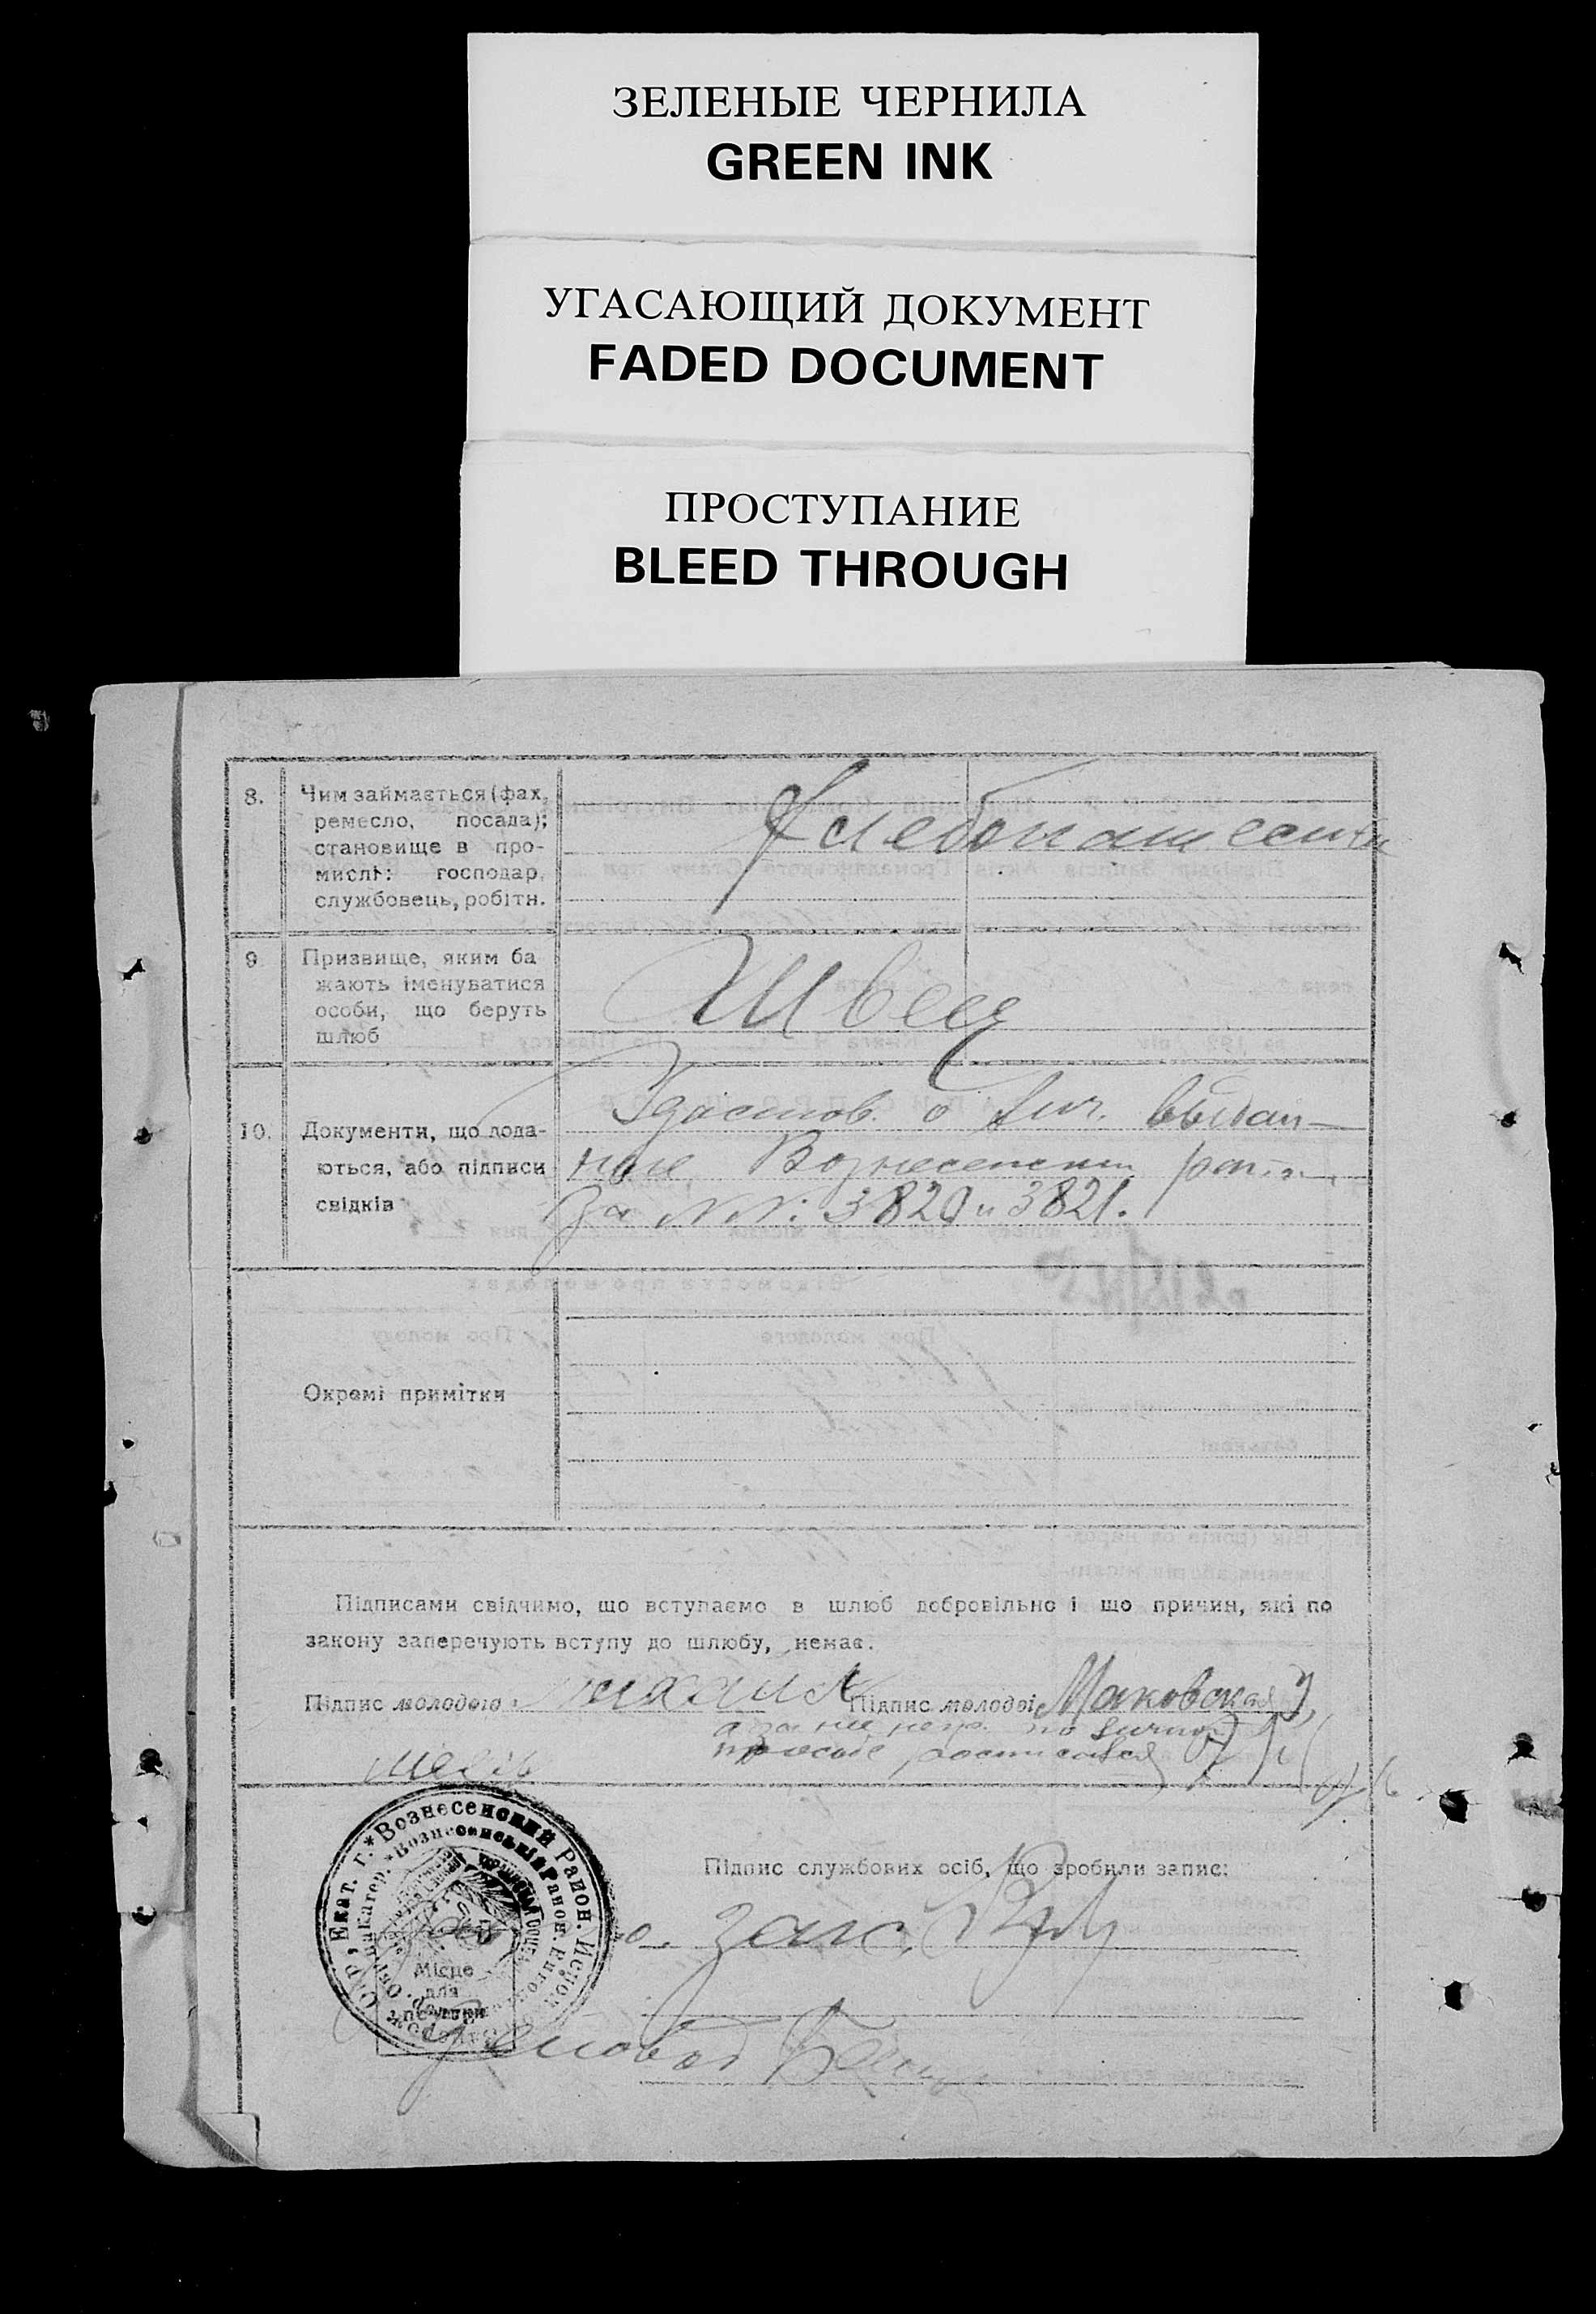 ЗЕЛЕНЫЕ ЧЕРНИЛА
GREEN INK
УГАСАЮЩИЙ ДОКУМЕНТ
FADED DOCUMENT
ПРОСТУПАНИЕ
BLEED THROUGH
8.
Чим займається (фах,
ремесло, посада);
становище в про-
мислі: господар,
службовець, робітн.
Хлебопашество
9.
Призвище, яким ба
жають іменуватися
особи, що беруть
шлюб
Швец
10.
Документи, що дода-
ються, або підписи
свідків
Удостов. о лич. выдан-
ные Вознесенским
за NN: 3820 и 3821.
Окремі примітки
Підписами свідчимо, що вступаємо в шлюб добровільно і що причин, які по
закону заперечують вступу до шлюбу, немає.
Підпис молодого: Підпис молодої Маковская
а за не негр. по личной
просьбе росписался
Окр, Екат. г. * Вознесенский Район. Испол
Місце
для
печатки
Підпис службових осіб, що зробили запис:
загс.